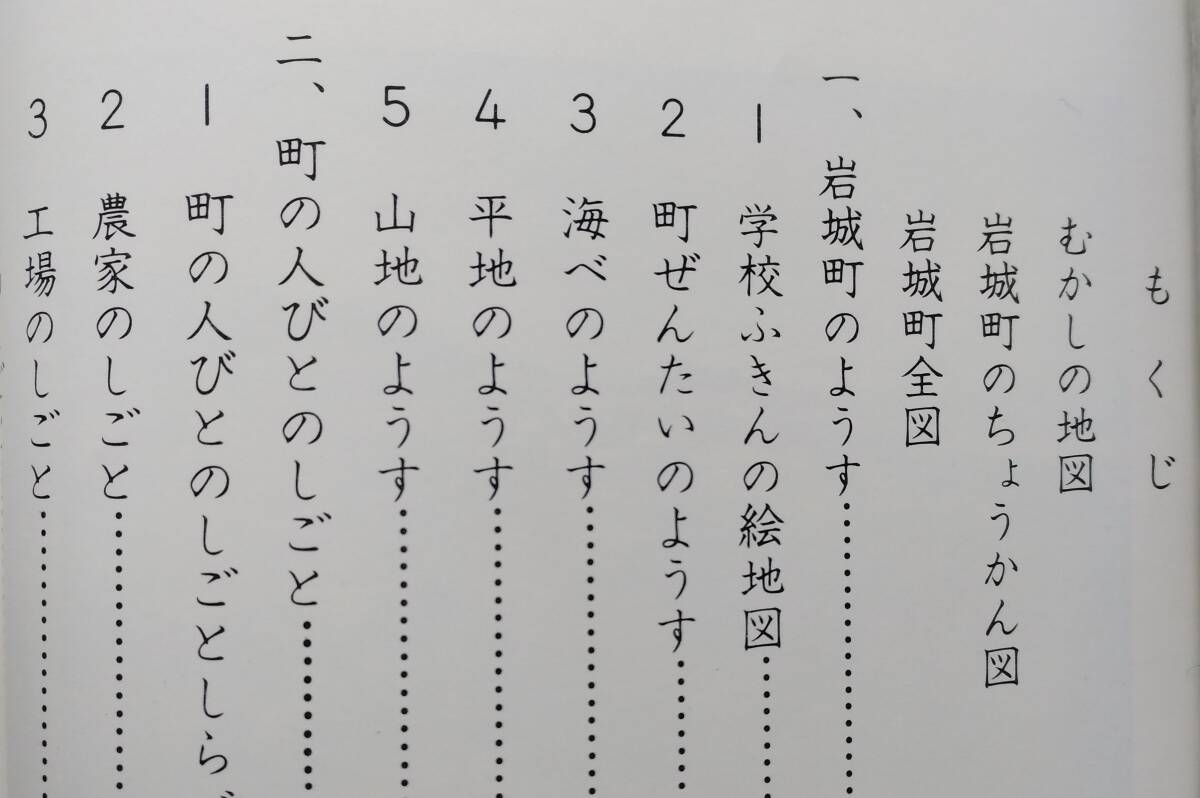 もくじ
むかしの地図
岩城町のちょうかん図
岩城町全図
一、岩城町のようす……………
1 学校ふきんの絵地図………
2 町ぜんたいのようす………
3 海べのようす……………
4 平地のようす……………
5 山地のようす……………
二、町の人びとのしごと………
1 町の人びとのしごとしら
2 農家のしごと……………
3 工場のしごと……………